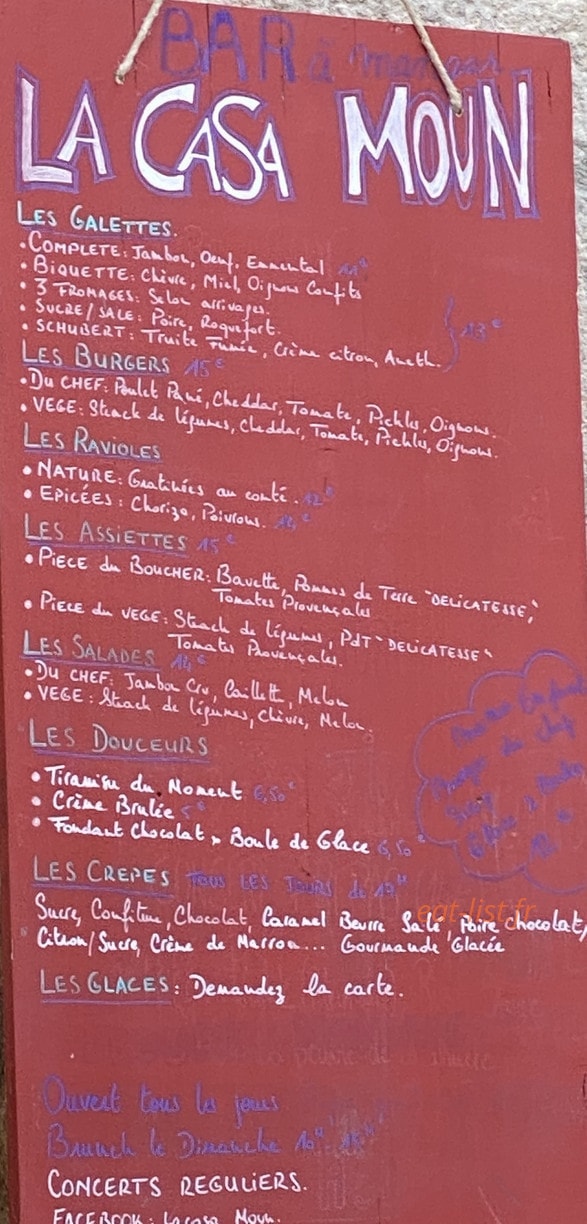 BAR à maman
LA CASA MOUN
LES GALETTES.
• COMPLETE: Jambon, Oeuf, Emmental 11€
• BIQUETTE: Chèvre, Miel, Oignons Confits
• 3 FROMAGES: Selon arrivages.
• SUCRE/SALE: Poire, Roquefort.
• SCHUBERT: Truite Fumée, Crème citron, Aneth. } 13€
LES BURGERS 15€
• DU CHEF: Poulet Pané, Cheddar, Tomate, Pickles, Oignons.
• VEGE: Steack de légumes, Cheddar, Tomate, Pickles, Oignons.
LES RAVIOLES
• NATURE: Gratinées au comté. 12€
• EPICÉES: Chorizo, Poivrons. 14€
LES ASSIETTES 15€
• PIECE du BOUCHER: Bavette, Pommes de Terre "DELICATESSE",
Tomates Provençales
• PIECE du VEGE: Steack de légumes, PdT "DELICATESSE"
Tomates Provençales.
LES SALADES 14€
• DU CHEF: Jambon Cru, Caillette, Melon
• VEGE: Steack de légumes, Chèvre, Melon.
LES DOUCEURS
• Tiramisu du Moment 6,50€
• Crème Brulée 5€
• Fondant Chocolat, Boule de Glace 6,50€
du Chef
Sirop
Glace 2 Boules
LES CREPES TOUS LES JOURS de 12H
Sucre, Confiture, Chocolat, Caramel Beurre Salé, Poire Chocolat,
Citron/Sucre, Crème de Marron... Gourmande Glacée
eat-list.fr
LES GLACES: Demandez la carte.
Ouvert tous les jours
Brunch le Dimanche 10H
CONCERTS REGULIERS.
FACEBOOK: Lacasa Moun.